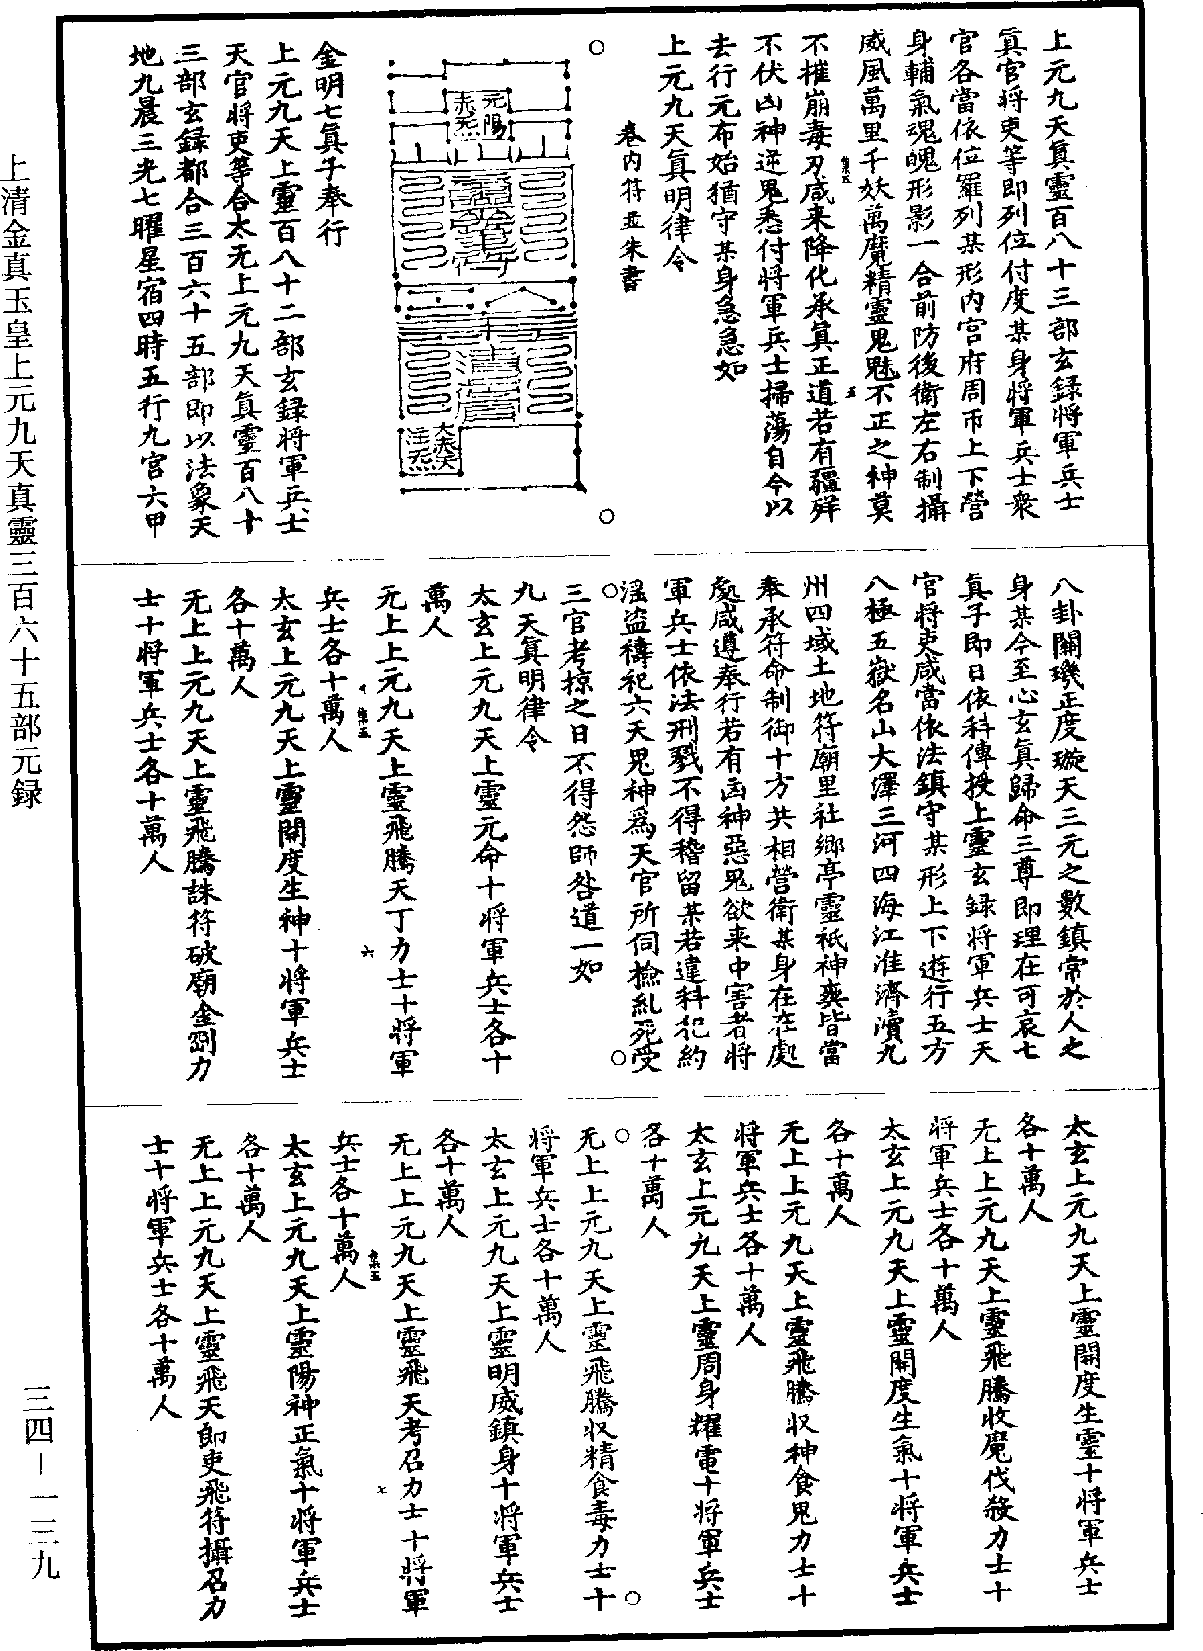 上元九天真靈百八十三部玄録將軍兵士
真官將吏等即列位付度某身將軍兵士衆
官各當依位羅列某形内宫府周帀上下營
身輔氣魂魄形影一合前防後衛左右制攝
威風萬里千妖萬魔精靈鬼魅不正之神莫
不摧崩毒刃咸来降化承真正道若有疆殍
不伏凶神逆鬼悉付將軍兵士掃蕩自今以
去行元布始猶守某身急急如
上元九天真明律令
卷内符並朱書
元陽
赤炁
太飛天
注炁
金明七真子奉行
上元九天上靈百八十二部玄録將軍兵士
天官將吏等合太无上元九天真靈百八十
三部玄録都合三百六十五部即以法象天
地九晨三光七曜星宿四時五行九宫六甲
八卦關璣正度璇天三元之數鎮常於人之
身某今至心玄真歸命三尊即理在可哀七
真子即日依科傳授上靈玄録將軍兵士天
官將吏咸當依法鎮守某形上下遊行五方
八極五嶽名山大澤三河四海江淮濟瀆九
州四域土地符廟里社鄉亭靈祇神奭皆當
奉承符命制御十方共相營衛某身在在處
處咸遵奉行若有凶神惡鬼欲来中害者將
軍兵士依法刑戮不得稽留某若違科犯約
淫盗禱祀六天鬼神爲天官所伺檢糺死受
三官考掠之日不得怨師咎道一如
九天真明律令
太玄上元九天上靈元命十將軍兵士各十
萬人
无上上元九天上靈飛騰天丁力士十將軍
兵士各十萬人
太玄上元九天上靈開度生神十將軍兵士
各十萬人
无上上元九天上靈飛騰誅符破廟金剛力
士十將軍兵士各十萬人
太玄上元九天上靈開度生靈十將軍兵士
各十萬人
无上上元九天上靈飛騰收魔伐殺力士十
將軍兵士各十萬人
太玄上元九天上靈開度生氣十將軍兵士
各十萬人
无上上元九天上靈飛騰收神食鬼力士十
將軍兵士各十萬人
太玄上元九天上靈周身耀電十將軍兵士
各十萬人
无上上元九天上靈飛騰收精食毒力士十
將軍兵士各十萬人
太玄上元九天上靈明威鎮身十將軍兵士
各十萬人
无上上元九天上靈飛天考召力士十將軍
兵士各十萬人
太玄上元九天上靈陽神正氣十將軍兵士
各十萬人
无上上元九天上靈飛天郎吏飛符攝召力
士十將軍兵士各十萬人
上清金真玉皇上元九天真靈三百六十五部元録
三四－一三九